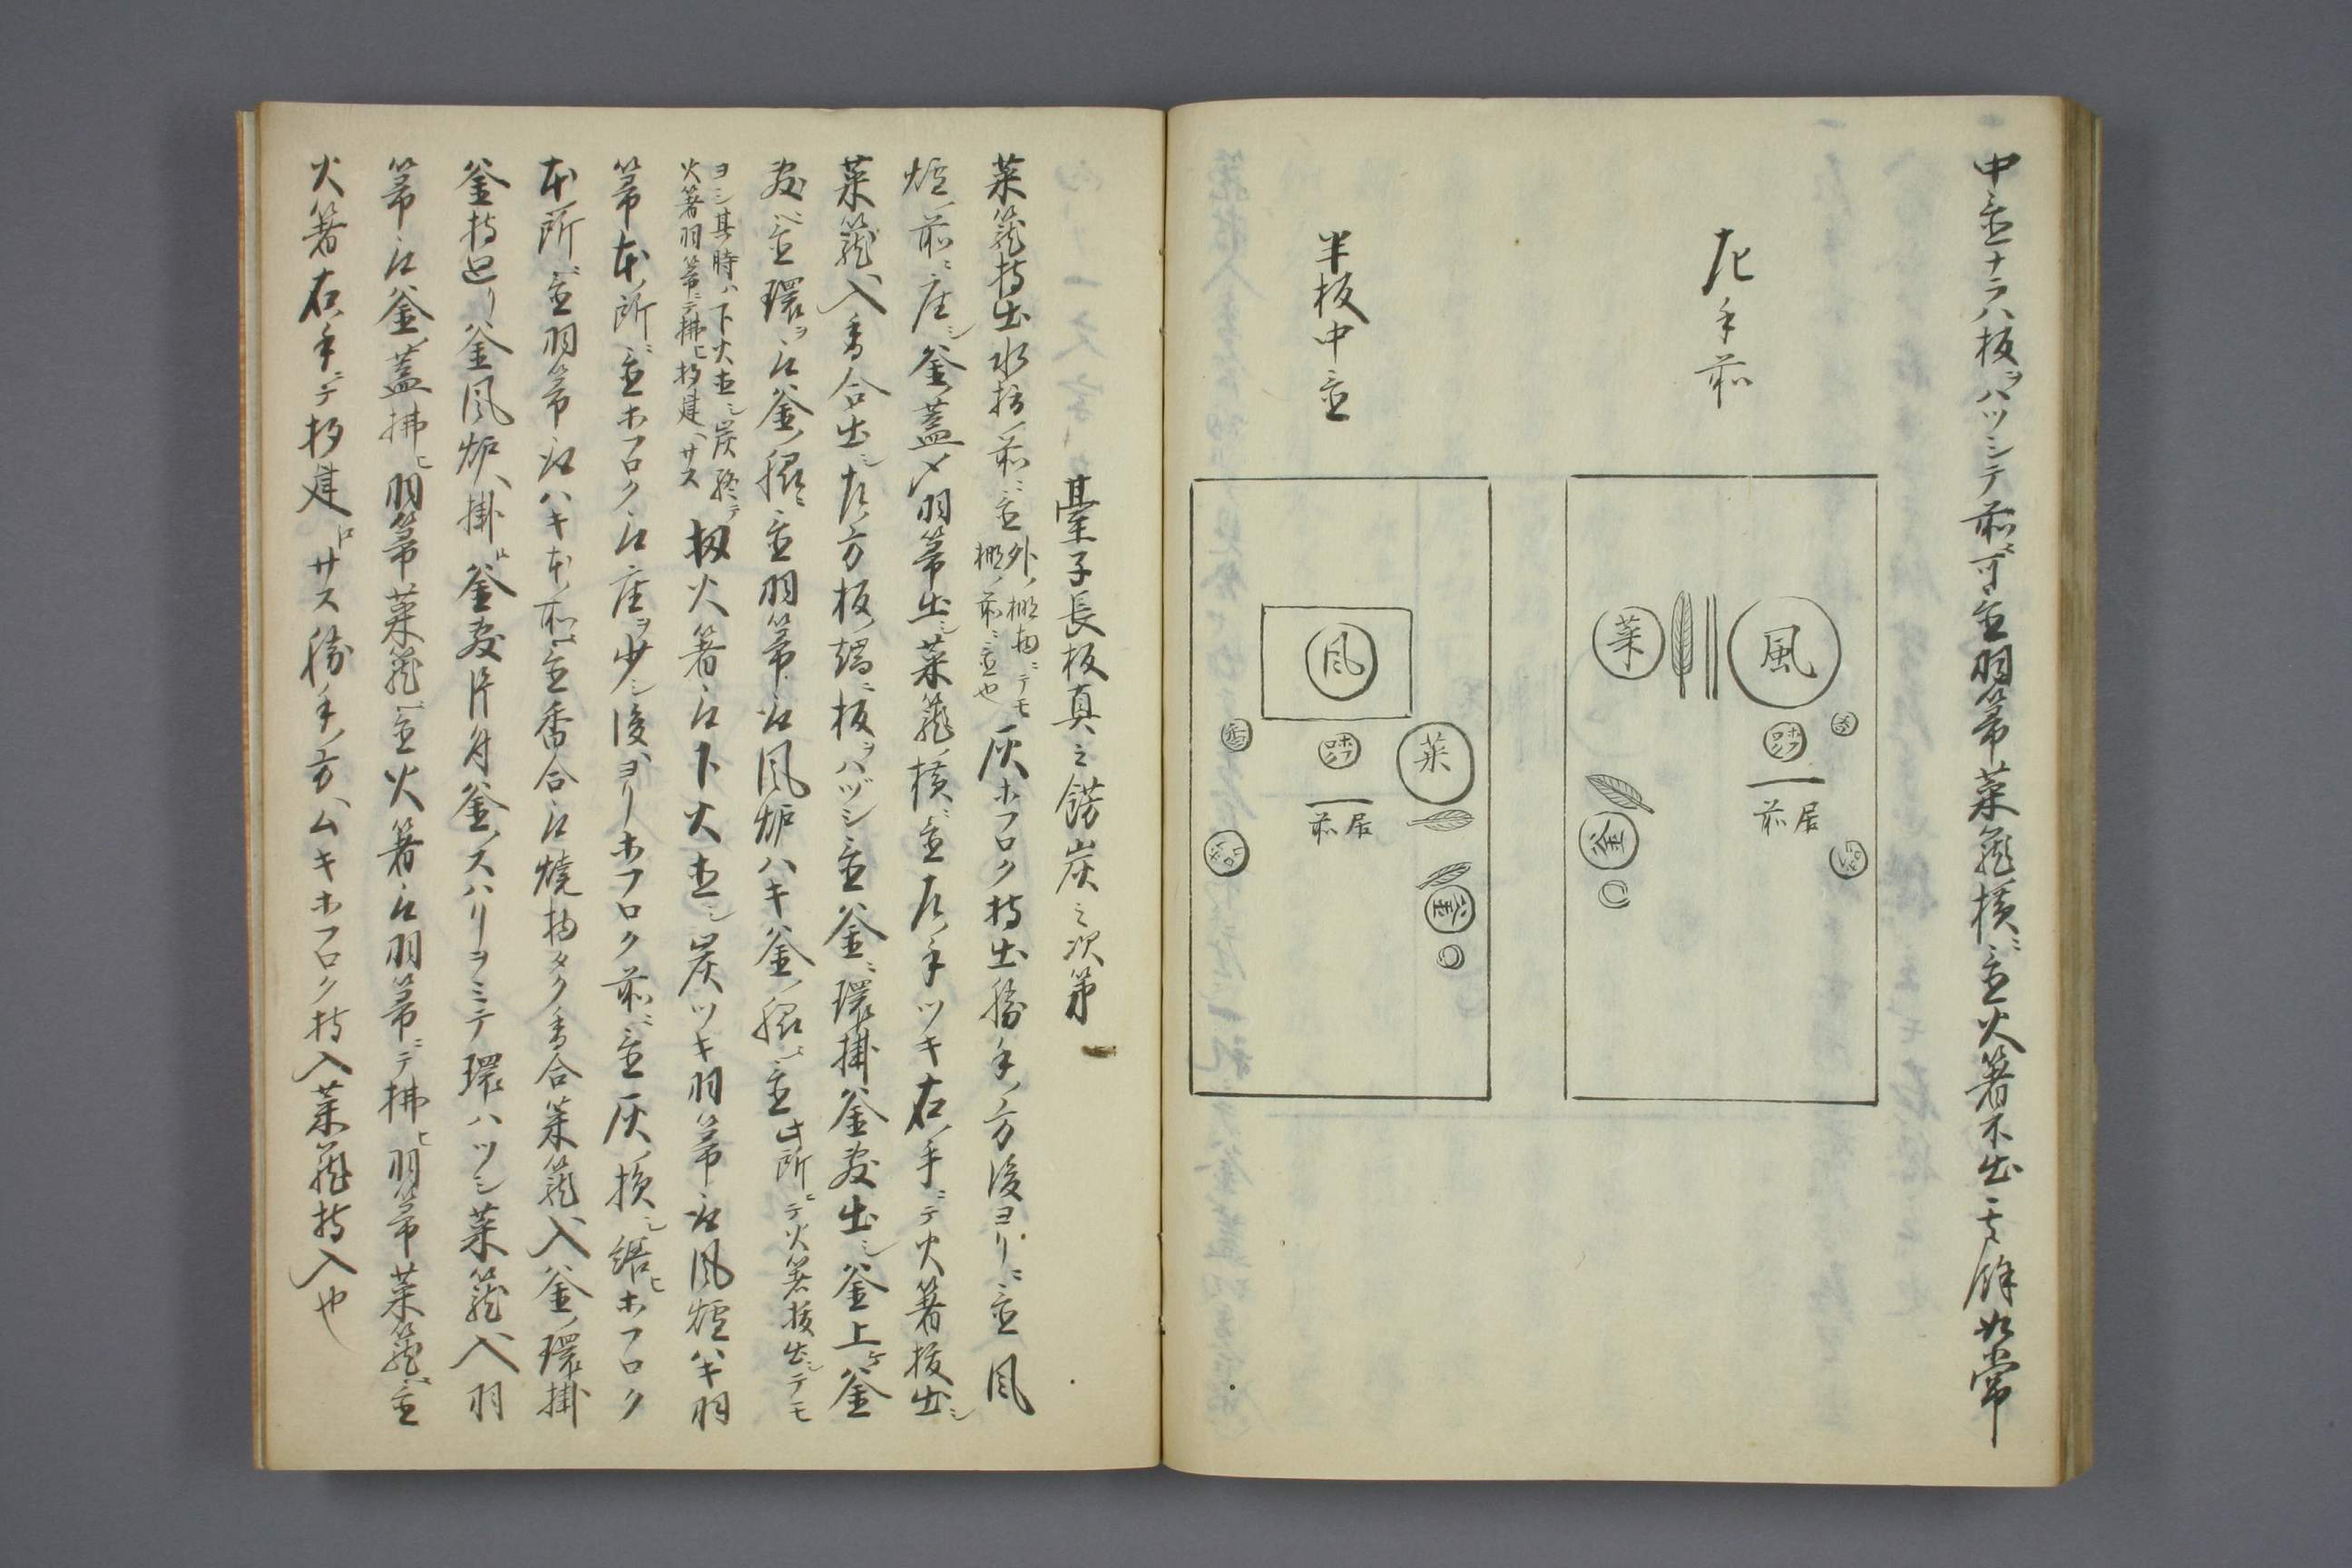 中置ナラハ板ヲハツシテ前ニ可置羽箒菜籠横ニ置火箸不出之其餘如常
左手前
風
菜
香
ホウロク
居前
釜
半板中置
風
香
ホウロク
菜
居前
釜
臺子長板真之餝炭之次第
菜籠持出水指ノ前ニ置
外ノ棚物ニテモ
棚ノ前ニ置也
灰ホフロク持出勝手ノ方後ヨリニ置風
炉ノ前ニ座シ釜ノ蓋〆羽箒出シ菜籠ノ横ニ置左ノ手ツキ右ノ手ニテ火箸抜出シ
菜籠ヘ入香合出シ左ノ方板ノ端ニ板ヲハヅシ置釜ニ環掛釜敷出シ釜上ケ釜
敷ニ置環ヲ取釜ノ脇ニ置羽箒取風炉ハキ釜ノ脇ニ置
此所ニテ火箸抜出シテモ
ヨシ其時ハ下火直シ炭終テ
火箸羽箒ニテ拂ヒ杓建ヘサス
扨火箸取下火直シ炭ツキ羽箒取風爐ハキ羽
箒本ノ所ニ置ホフロク取座ヲ少シ後ヘヨリホフロク前ニ置灰ノ損シ繕ヒホフロク
本ノ所ニ置羽箒取ハキ本ノ前ニ置香合取焼物タク香合菜籠ヘ入釜ノ環掛
釜持廻リ釜風炉ヘ掛ケ釜敷片付釜ノスハリヲミテ環ハツシ菜籠ヘ入羽
箒取釜ノ蓋拂ヒ羽箒菜籠ニ置火箸取羽箒ニテ拂ヒ羽箒菜籠ニ置
火箸右ノ手ニテ杓建ニサス勝手ノ方ヘムキホフロク持入菜籠持入也